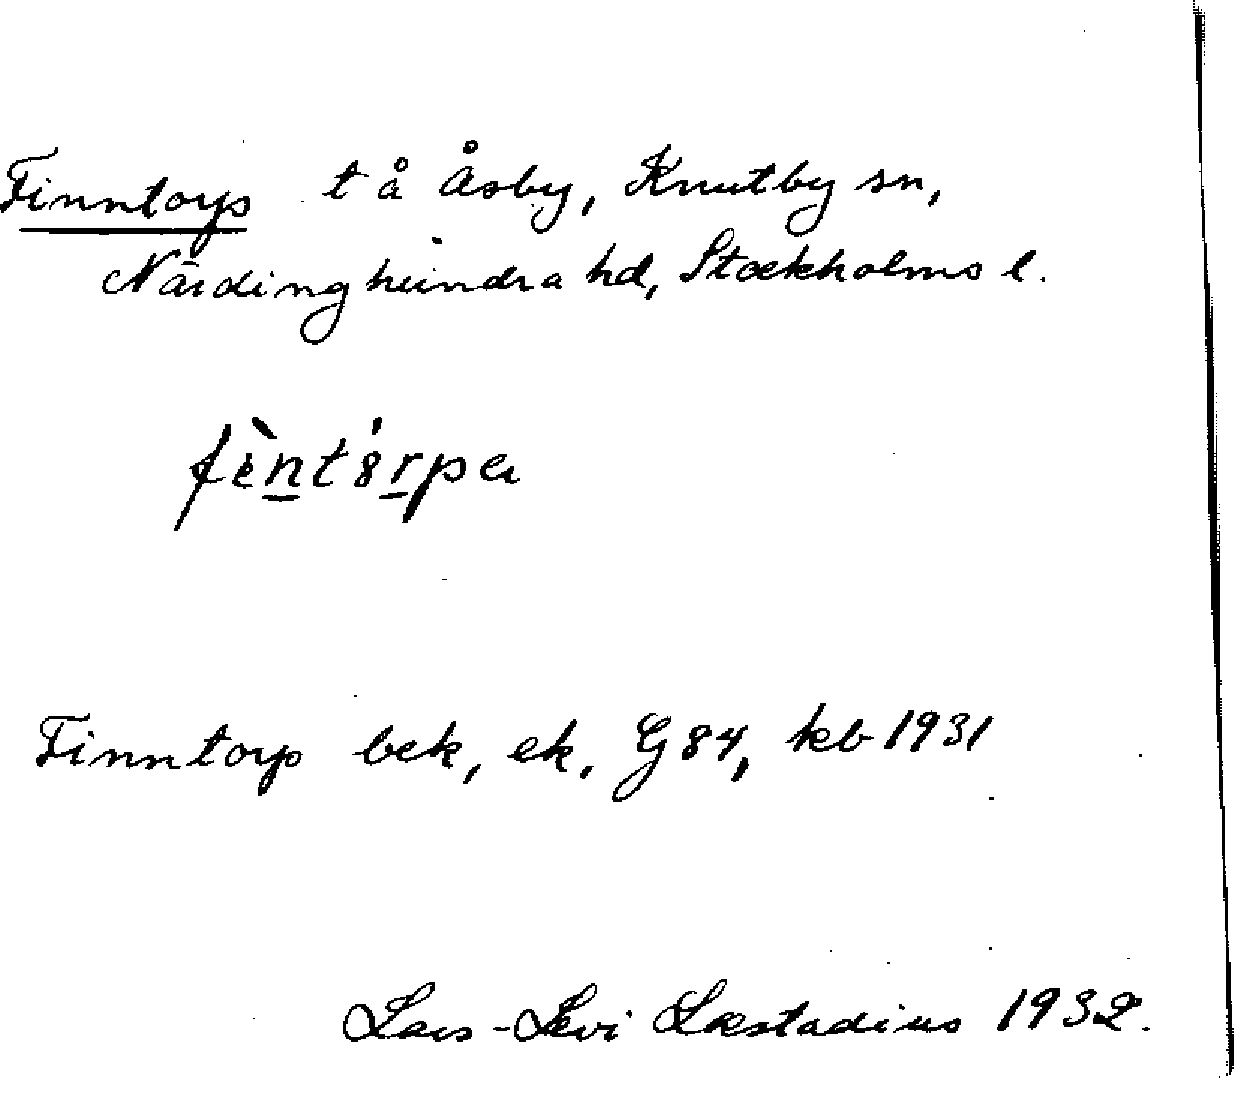 Finntorp t å Åsby, Knutby sn,
Närdinghundra hd, Stockholms l.
fènt8́rpa
Finntorp bek, ek. G 84, kb 1931
Lars-Levi Læstadius 1932.